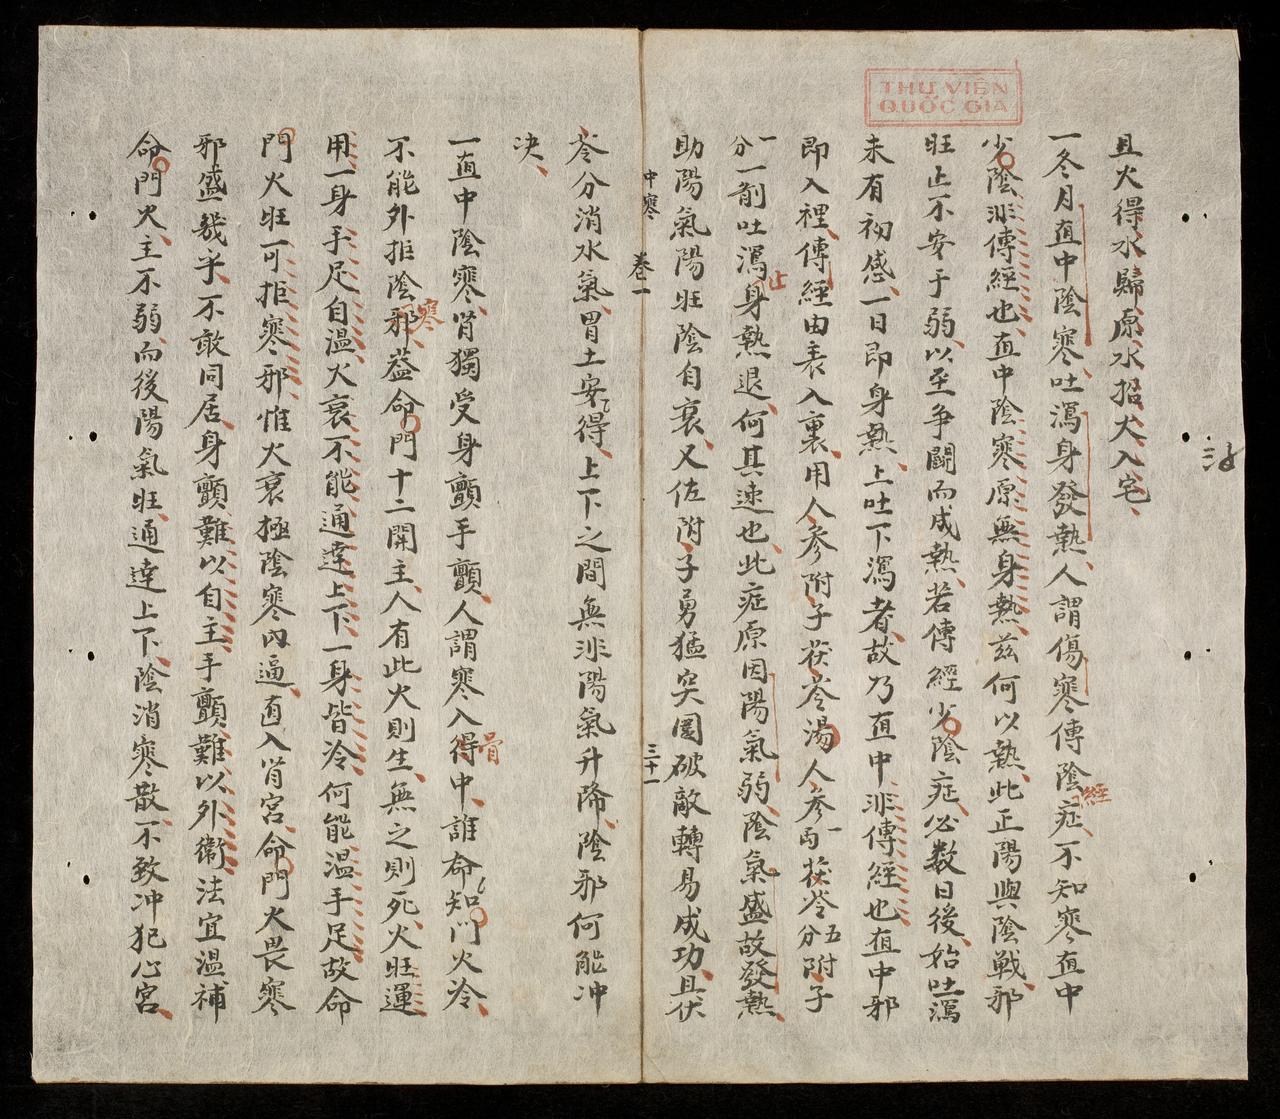 THƯ VIỆN
QUỐC GIA
且火得水歸原水招火入宅
一冬月直中陰寒吐瀉身發熱人謂傷寒傳陰症不知寒直中
經
少陰非傳經也直中陰寒原無身熱玆何以熱此正陽與陰戰邪
旺正不安于弱以至爭鬬而成熱若傳經少陰症必数日後始吐瀉
未有初感一日即身熱上吐下瀉者故乃直中非傳經也直中邪
即入裡傳經由表入裏用人參附子茯苓湯人參一両茯苓五分附子
一分一劑吐瀉身熱退何其速也此症原因陽氣弱陰氣盛故發熱
止
助陽氣陽旺陰自衰又佐附子勇猛突圍破敵轉易成功且茯
中寒 卷一 三十一
苓分消水氣胃土安得上下之間無非陽氣升降陰邪何能冲
决
一直中陰寒肾獨受身顫手顫人謂寒入得中誰命知門火冷
骨
不能外拒陰邪葢命門十二関主人有此火則生無之則死火旺運
寒
用一身手足自温火衰不能通達上下一身皆冷何能温手足故命
門火旺可拒寒邪惟火衰極陰寒内逼直入肾宮命門火畏寒
邪盛幾乎不敢同居身顫難以自主手顫難以外衛法宜温補
命門火主不弱而後陽氣旺通達上下陰消寒散不致冲犯心宮